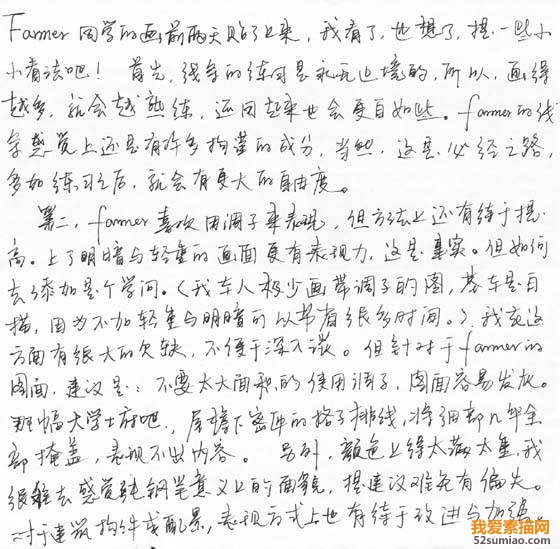 Farmer 同学的画前两天贴了上来，我看了，也想了，提一些小
小看法吧！ 首先，线条的练习是永无止境的，所以，画得
越多，就会越熟练，运用起来也会更自如些。farmer的线
条感觉上还是有许多拘谨的成分，当然，这是必经之路，
多加练习之后，就会有更大的自由度。
第二，farmer喜欢用调子来表现，但方法上还有待于提
高。上了明暗与轻重的画面更有表现力，这是事实。但如何
去添加是个学问。（我本人极少画带调子的图，基本是白
描，因为不加轻重与明暗可以节省很多时间。）我在这
方面有很大的欠缺，不便于深入谈。但针对于farmer的
图面，建议是：不要太大面积的使用调子，图面容易发灰。
那幅大学士府吧，屋檐下密匝的格子排线，将细部几乎全
部掩盖，表现不出内容。 另外，颜色上得太满太重，我
很难去感觉纯钢笔意义上的面貌，提建议难免有偏失。
对于建筑构件或配景，表现方式上也有待于改进与加强。
我爱素描网
52sumiao.com